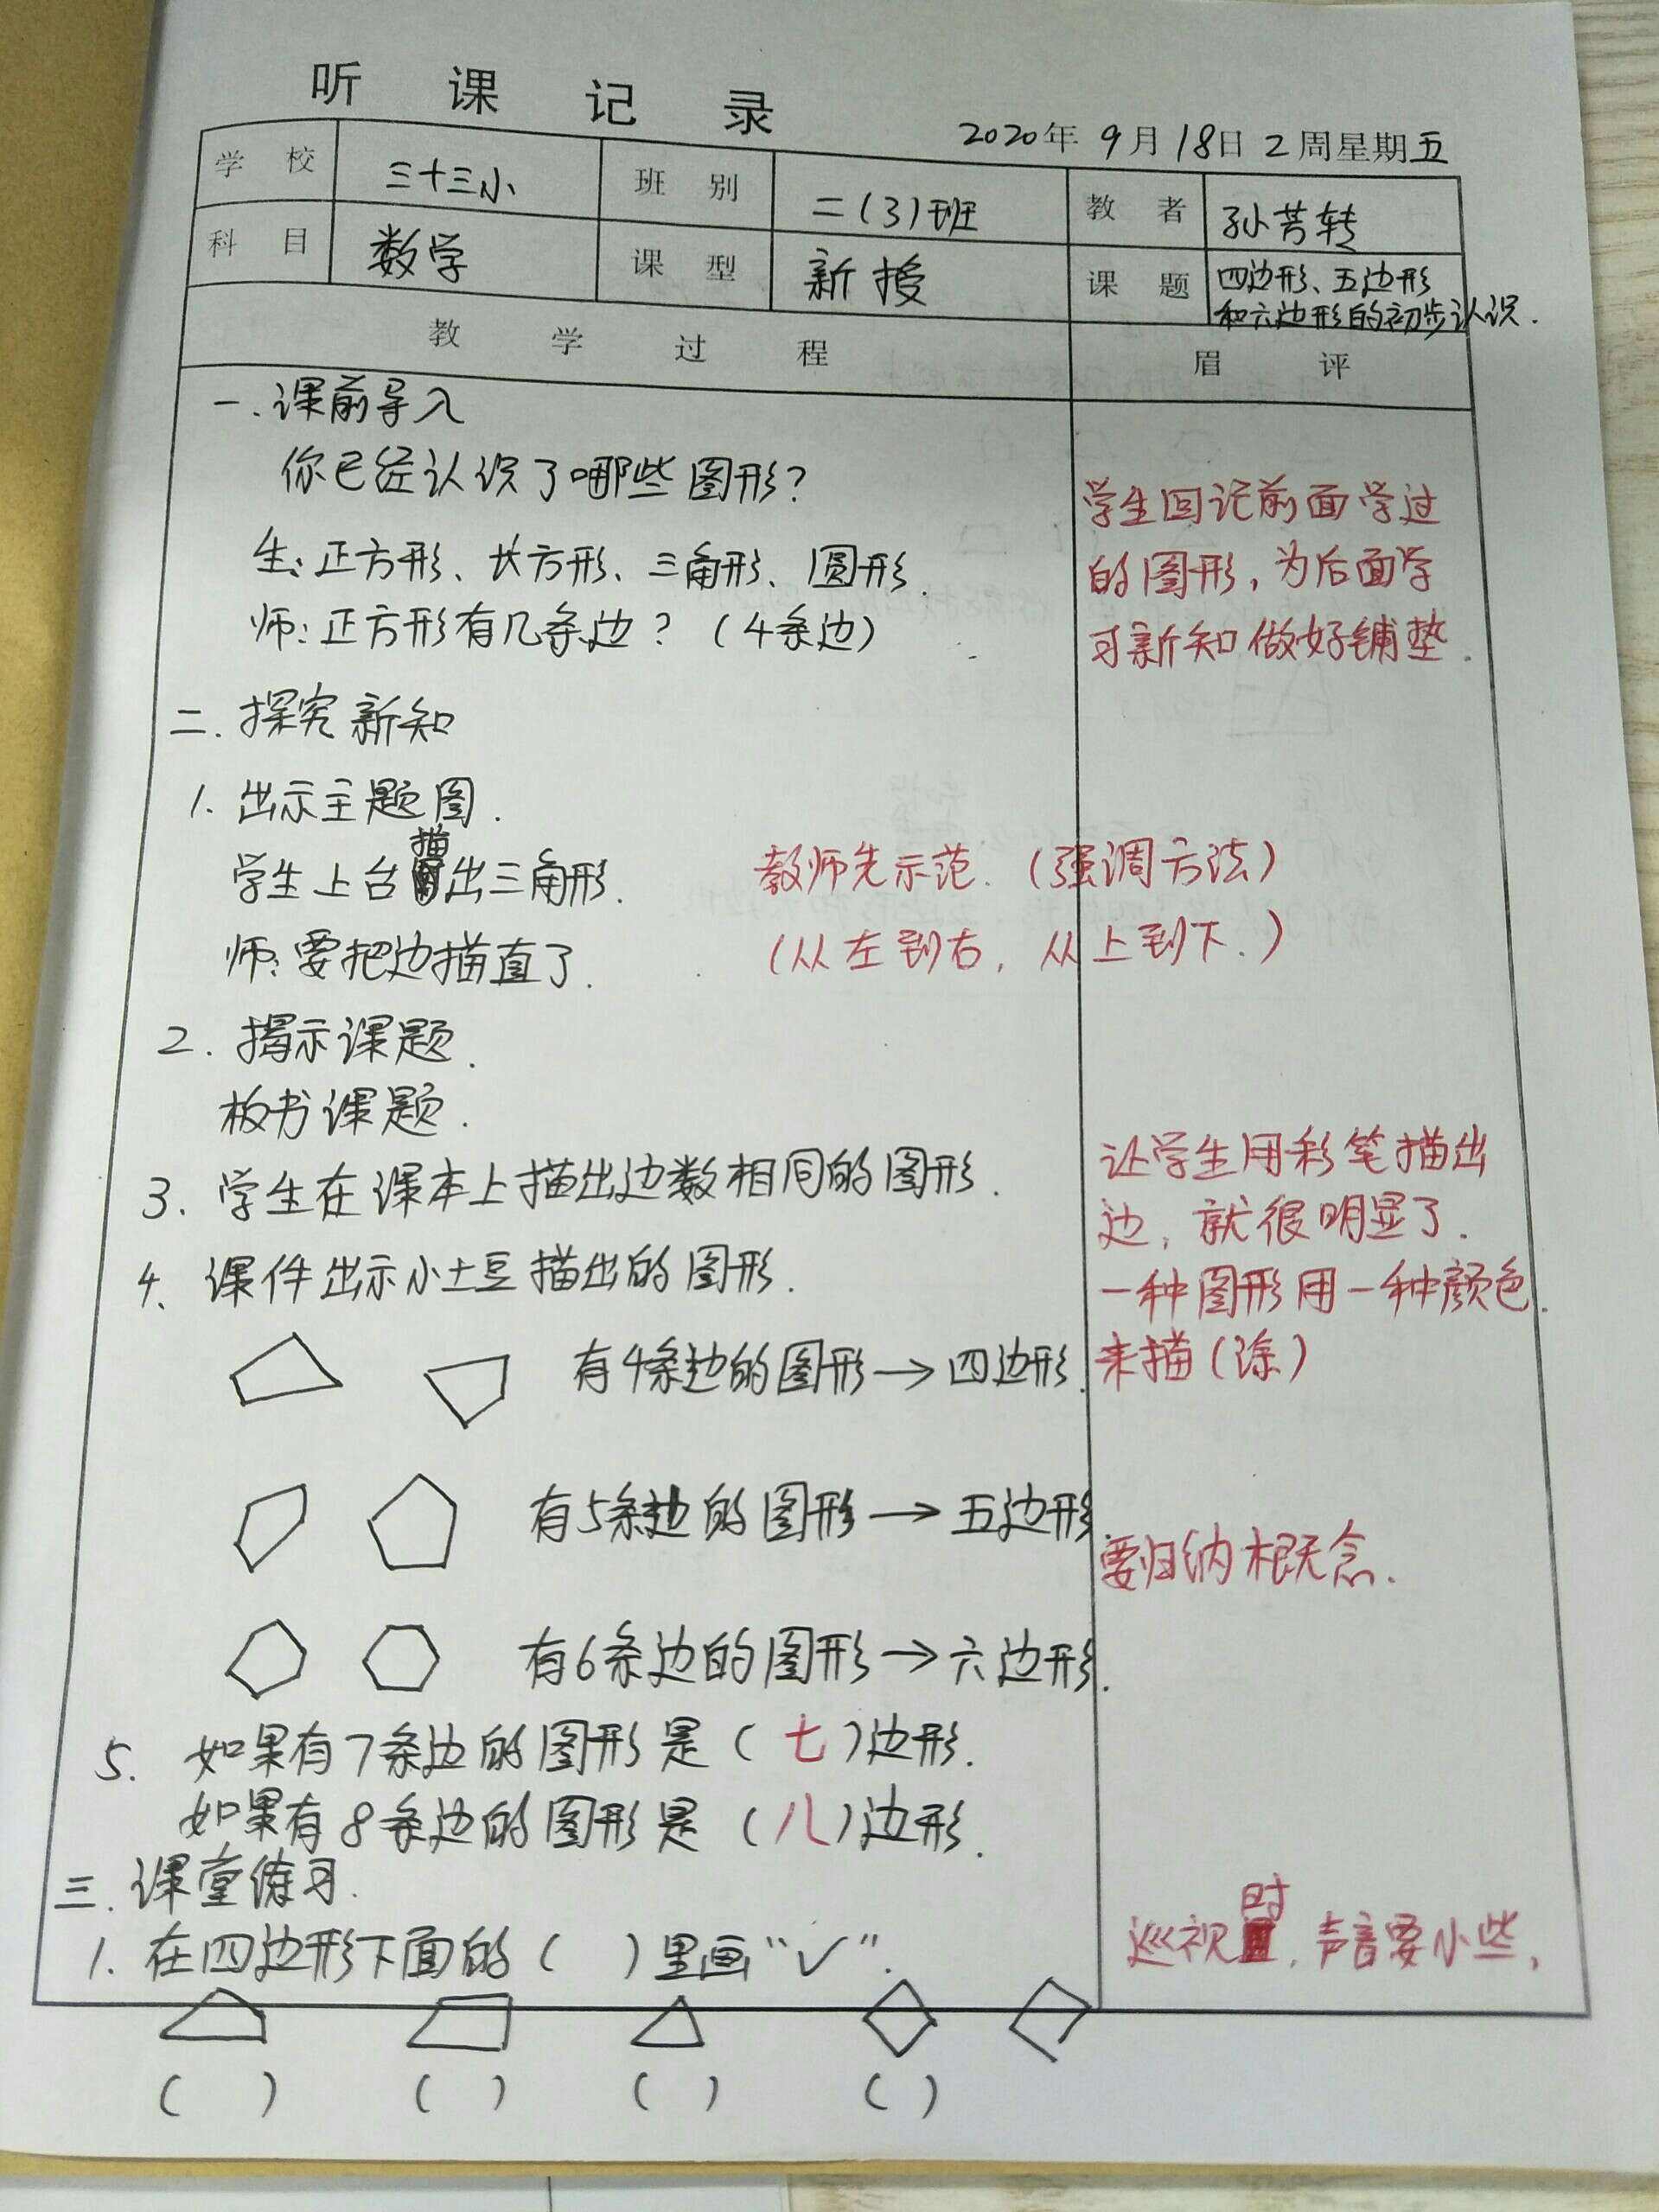 听课记录
2020年 9月18日 2周星期五
学校 三十三小 班别 二(3)班 教者 孙芳转
科目 数学 课型 新授 课题 四边形、五边形
和六边形的初步认识.
教学过程 眉评
一.课前导入
你已经认识了哪些图形?
生:正方形、长方形、三角形、圆形.
师:正方形有几条边?(4条边)
学生回记前面学过
的图形,为后面学
习新知做好铺垫.
二.探究新知
1.出示主题图.
学生上台描出三角形.
教师先示范.(强调方法)
师:要把边描直了.
(从左到右,从上到下.)
2.揭示课题.
板书课题.
3.学生在课本上描出边数相同的图形.
让学生用彩笔描出
边,就很明显了.
一种图形用一种颜色.
来描(涂)
4、课件出示小土豆描出的图形.
有4条边的图形→四边形.
有5条边的图形→五边形.
要归纳概念.
有6条边的图形→六边形.
5.如果有7条边的图形是(七)边形.
如果有8条边的图形是(八)边形.
三.课堂练习.
1.在四边形下面的( )里画“√”.
巡视时,声音要小些,
( ) ( ) ( ) ( )